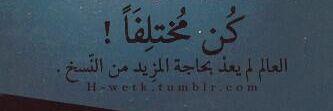 كُن مُختلِفَاً !
العالم لم يعدْ بحاجة المزيد من النّسخ .
H-wetk.tumblr.com